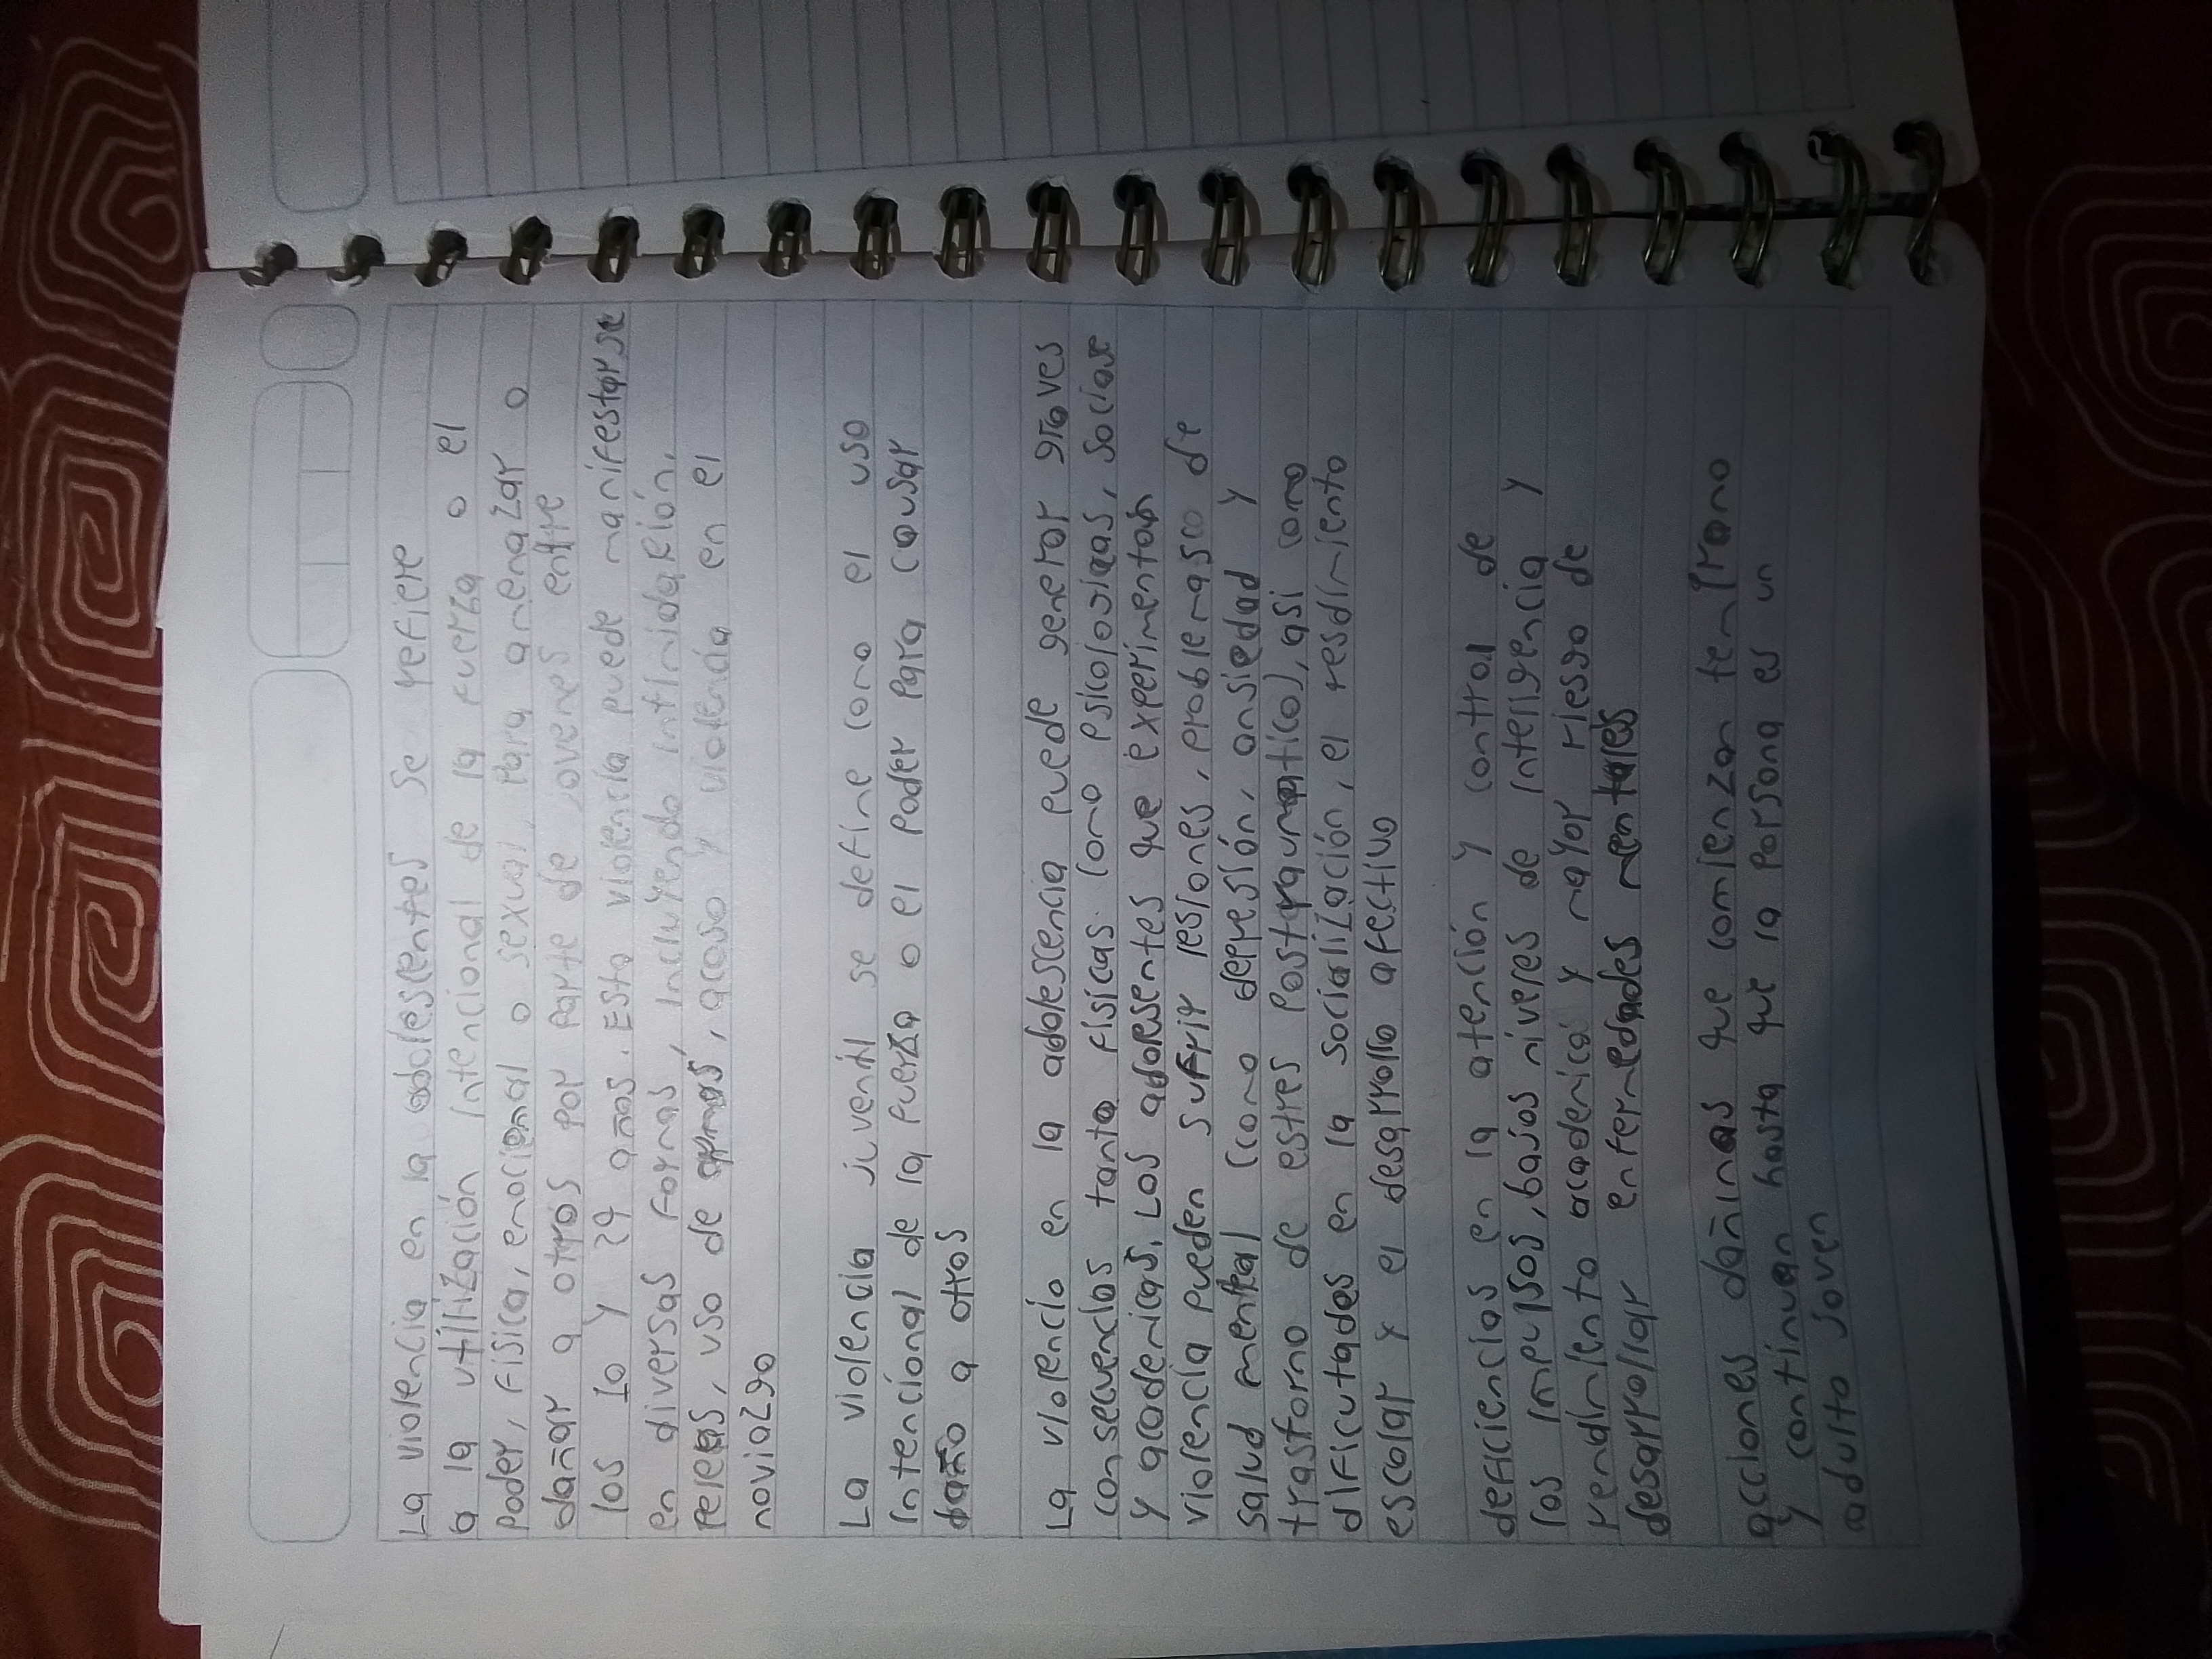 La violencia en la adolescentes se refiere
a la utilización intencional de la fuerza o el
poder, física, emocional o sexual, para amenazar o
dañar a otros por parte de jovenes entre
los 10 y 29 años. Esta violencia puede manifestarse
en diversas formas, incluyendo intimidación,
peleas, uso de armas, acoso y violencia en el
noviazgo
La violencia juvenil se define como el uso
intencional de la fuerza o el poder para causar
daño a otros
La violencia en la adolescencia puede generar graves
consecuencias tanta físicas como psicologicas, sociave
y academicas. Los adolesentes que experimentan
violencia pueden sufrir lesiones, problemasco de
salud mental (como depresión, ansiedad y
trastorno de estres postraumatico), asi como
dificutades en la socialización, el resdimiento
escolar y el desarrollo afectivo
deficiencias en la atención y control de
los impulsos, bajos niveles de inteligencia y
rendimiento academico y mayor riesgo de
desarrollar enfermedades mentales
acciones dañinas que comienzan temprano
y continuan hasta que la persona es un
adulto joven